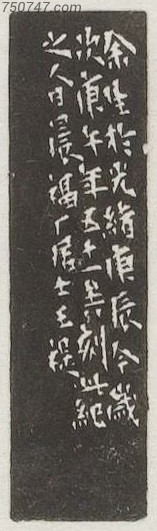 750747.com
余生於光緒庚辰今歲
次庚午年五十一矣刻此紀
之人日晨福厂居士王禔